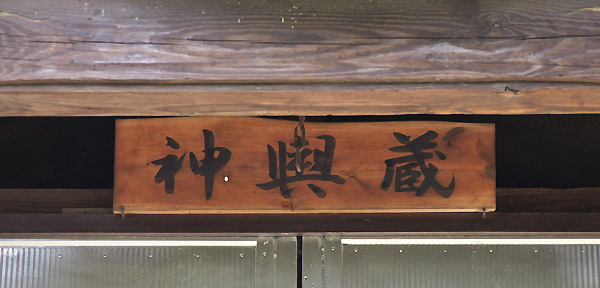 神輿蔵